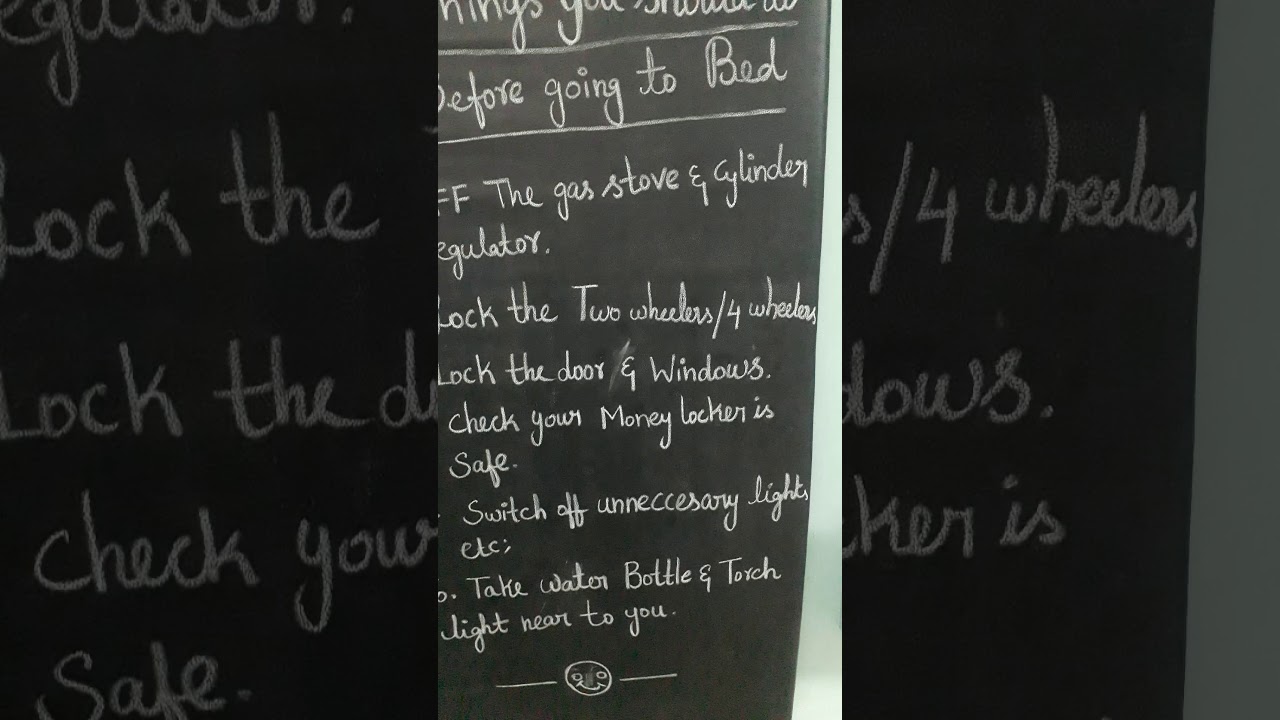 hings you should do
before going to Bed
FF The gas stove & Cylinder
egulator.
Lock the Two wheelers/4 wheelers
Lock the door & Windows.
check your Money locker is
Safe.
Switch off unneccesary lights
etc;
6. Take water Bottle & Torch
light near to you.